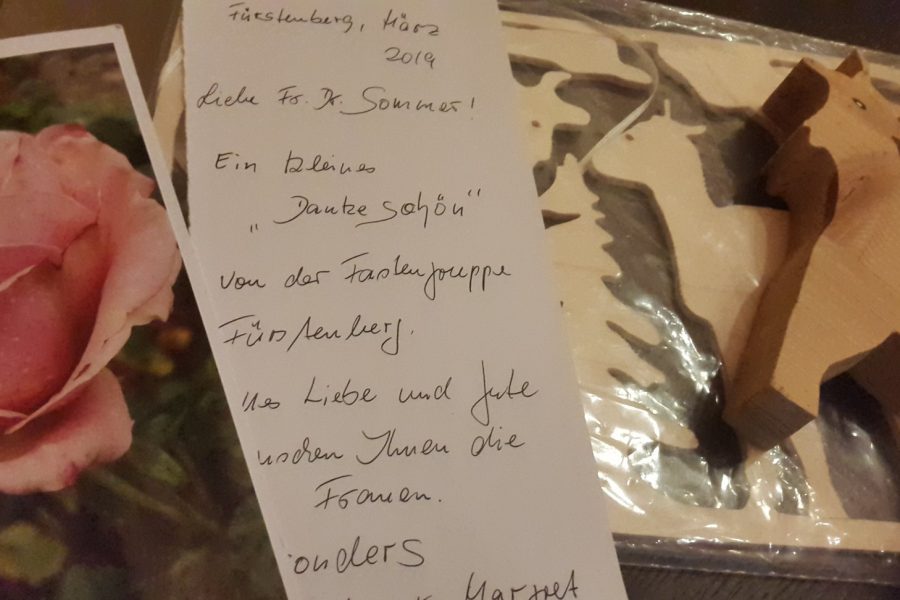 Fürstenberg, März
2019
Liebe Fr. Dr. Sommer!
Ein kleines
„Dankeschön"
von der Fastengruppe
Fürstenberg.
Liebe und Gute
Ihnen die
Frauen.
onders
Margret